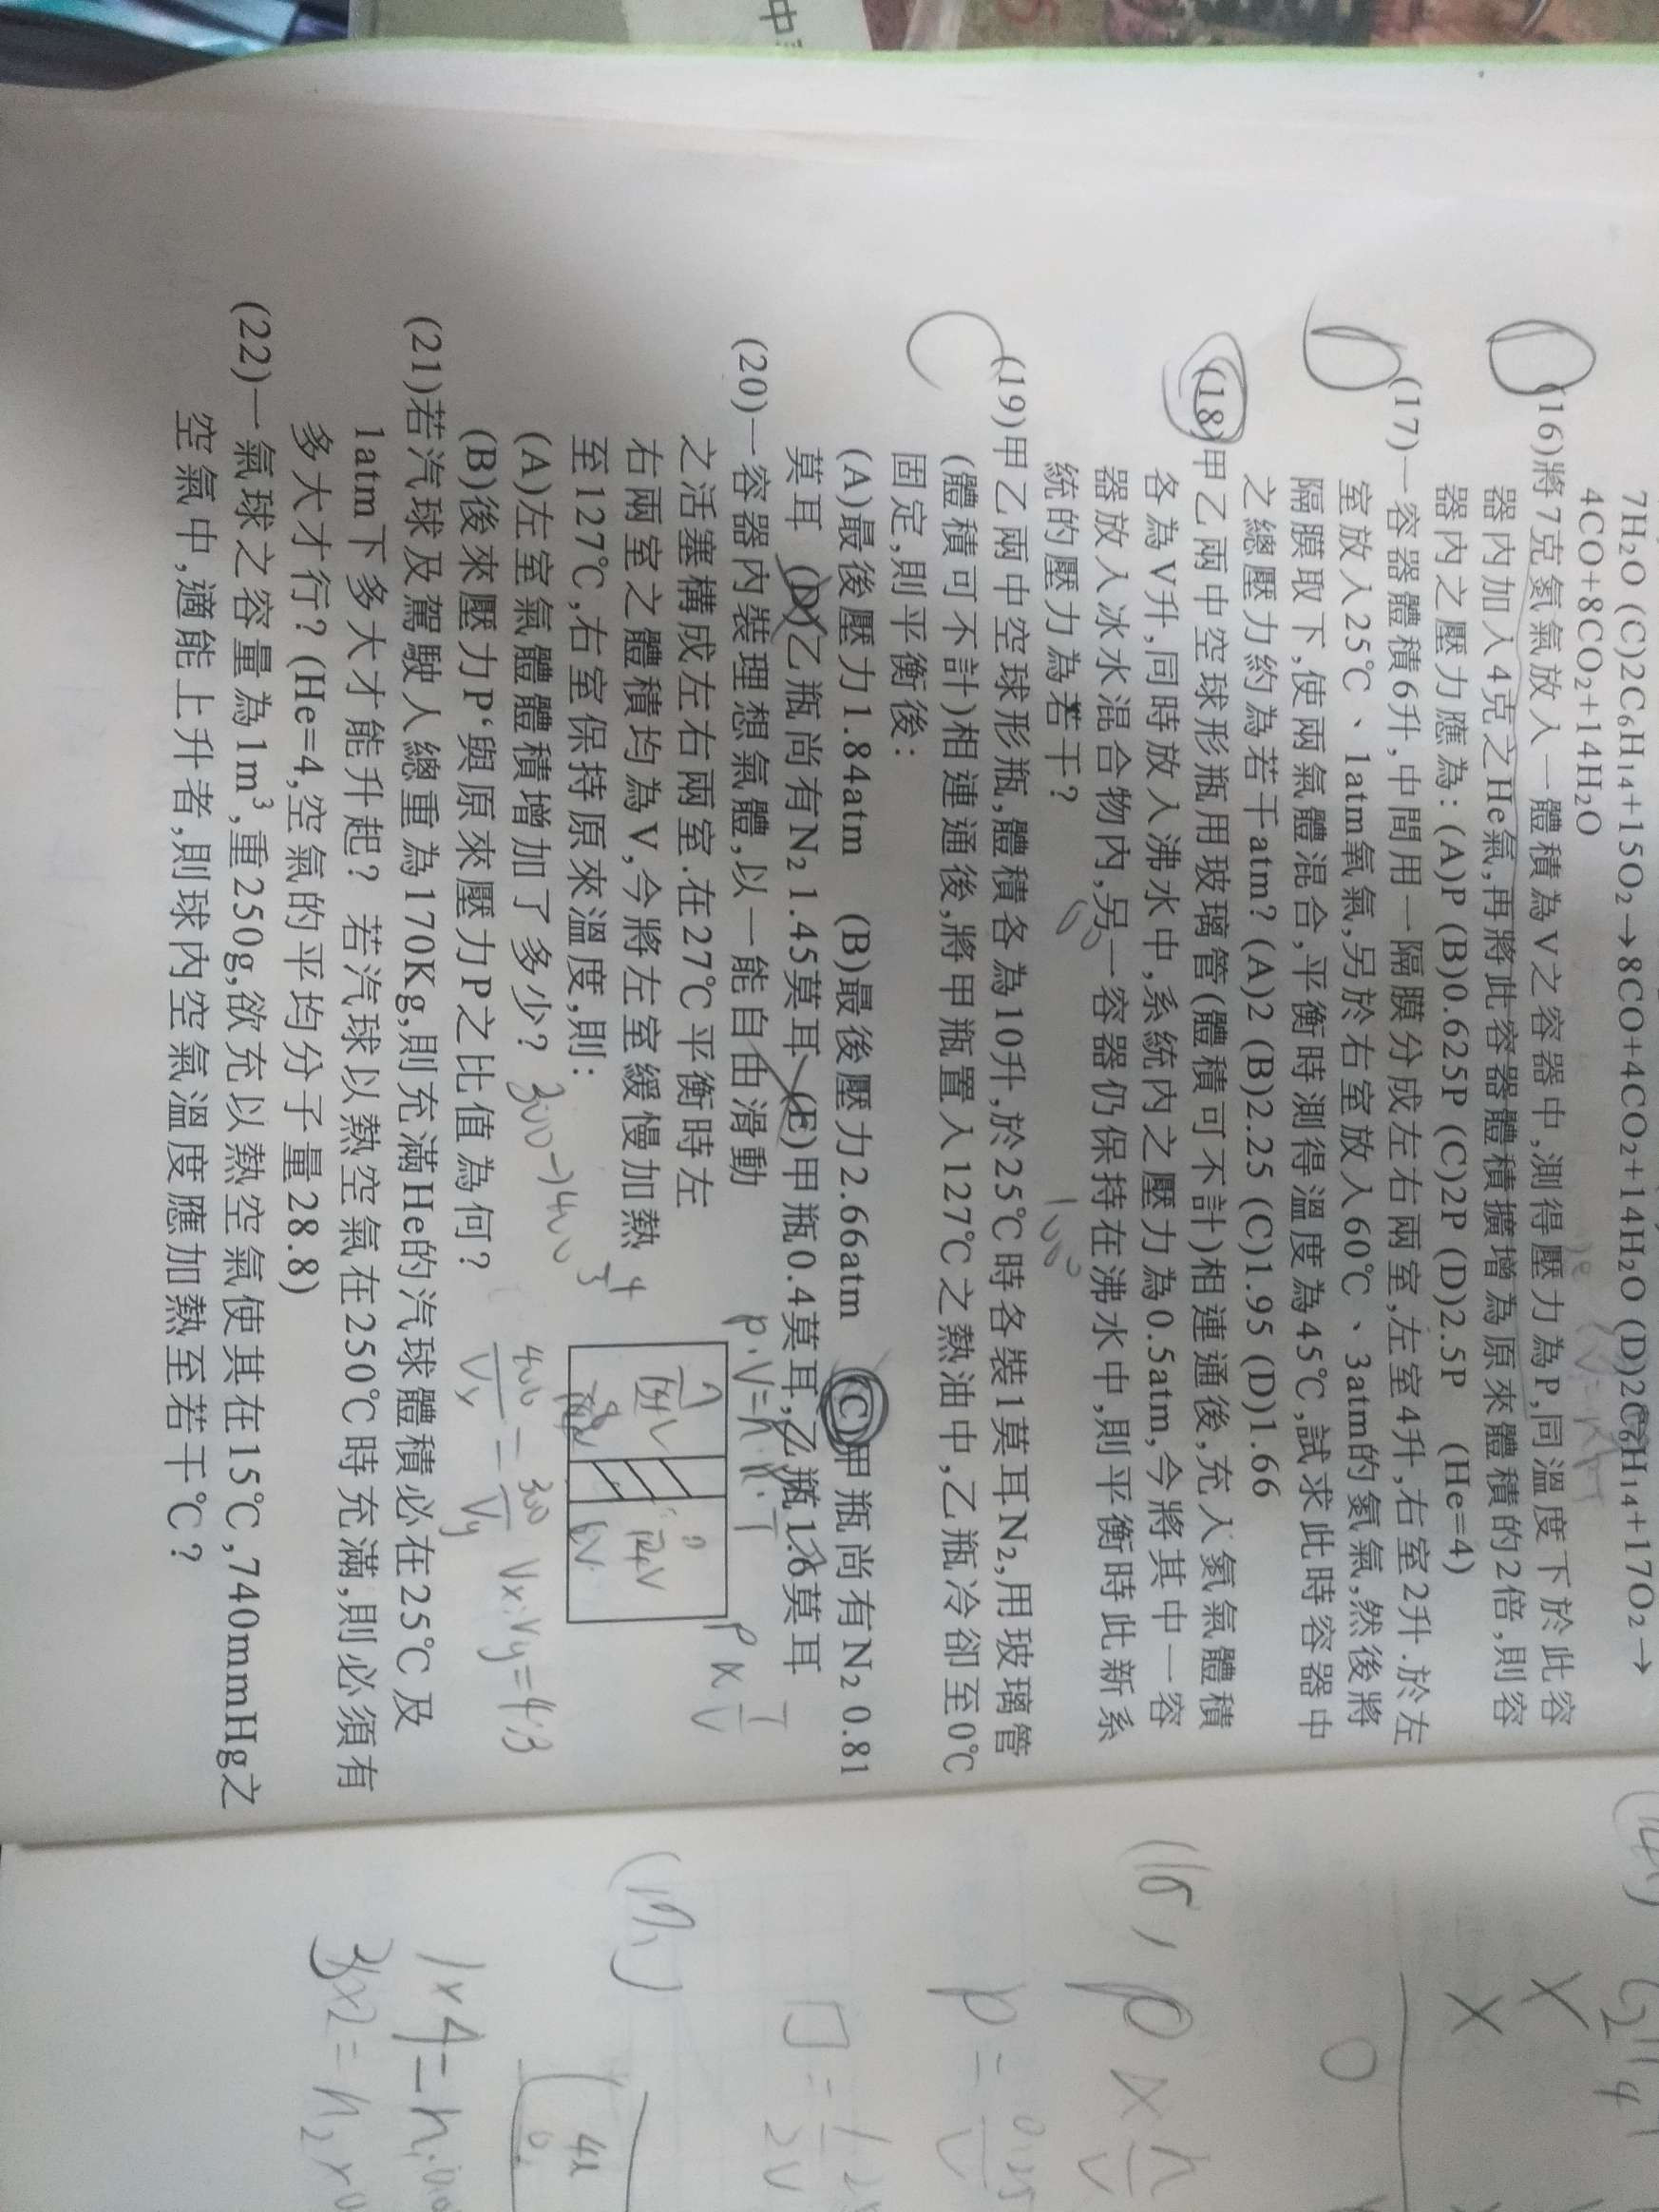 7H₂O (C)2C₆H₁₄+15O₂→8CO+4CO₂+14H₂O (D)2C₆H₁₄+17O₂→
4CO+8CO₂+14H₂O
(16)將7克氮氣放入一體積為V之容器中,測得壓力為P,同溫度下於此容
器內加入4克之He氣,再將此容器體積擴增為原來體積的2倍,則容
器內之壓力應為: (A)P (B)0.625P (C)2P (D)2.5P (He=4)
(17)一容器體積6升,中間用一隔膜分成左右兩室,左室4升,右室2升.於左
室放入25℃、1atm氧氣,另於右室放入60℃、3atm的氮氣,然後將
隔膜取下,使兩氣體混合,平衡時測得溫度為45℃,試求此時容器中
之總壓力約為若干atm? (A)2 (B)2.25 (C)1.95 (D)1.66
(18)甲乙兩中空球形瓶用玻璃管(體積可不計)相連通後,充入氮氣體積
各為V升,同時放入沸水中,系統內之壓力為0.5atm,今將其中一容
器放入冰水混合物內,另一容器仍保持在沸水中,則平衡時此新系
統的壓力為若干?
100°
(19)甲乙兩中空球形瓶,體積各為10升,於25℃時各裝1莫耳N₂,用玻璃管
(體積可不計)相連通後,將甲瓶置入127℃之熱油中,乙瓶冷卻至0℃
固定,則平衡後:
(A)最後壓力1.84atm (B)最後壓力2.66atm (C)甲瓶尚有N₂ 0.81
莫耳 (D)乙瓶尚有N₂ 1.45莫耳 (E)甲瓶0.4莫耳,乙瓶1.6莫耳
(20)一容器內裝理想氣體,以一能自由滑動
之活塞構成左右兩室.在27℃平衡時左
右兩室之體積均為V,今將左室緩慢加熱
至127℃,右室保持原來溫度,則:
(A)左室氣體體積增加了多少?
(B)後來壓力P‘與原來壓力P之比值為何?
300→400
P·V=n·R·T
P ∝ T/V
400/Vx = 300/Vy Vx:Vy=4:3
(21)若汽球及駕駛人總重為170Kg,則充滿He的汽球體積必在25℃及
1atm下多大才能升起? 若汽球以熱空氣在250℃時充滿,則必須有
多大才行? (He=4,空氣的平均分子量28.8)
(22)一氣球之容量為1m³,重250g,欲充以熱空氣使其在15℃,740mmHg之
空氣中,適能上升者,則球內空氣溫度應加熱至若干℃?